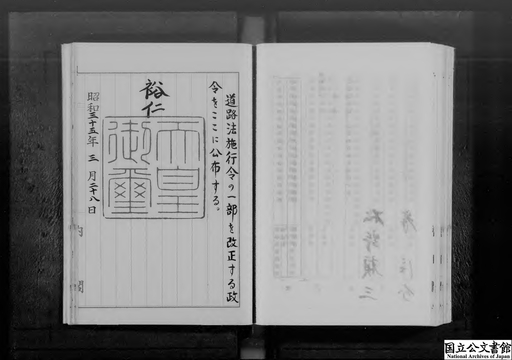 道路法施行令の一部を改正する政
令をここに公布する。
裕仁
天皇
御璽
昭和三十五年三月二十八日
内閣
国立公文書館
National Archives of Japan